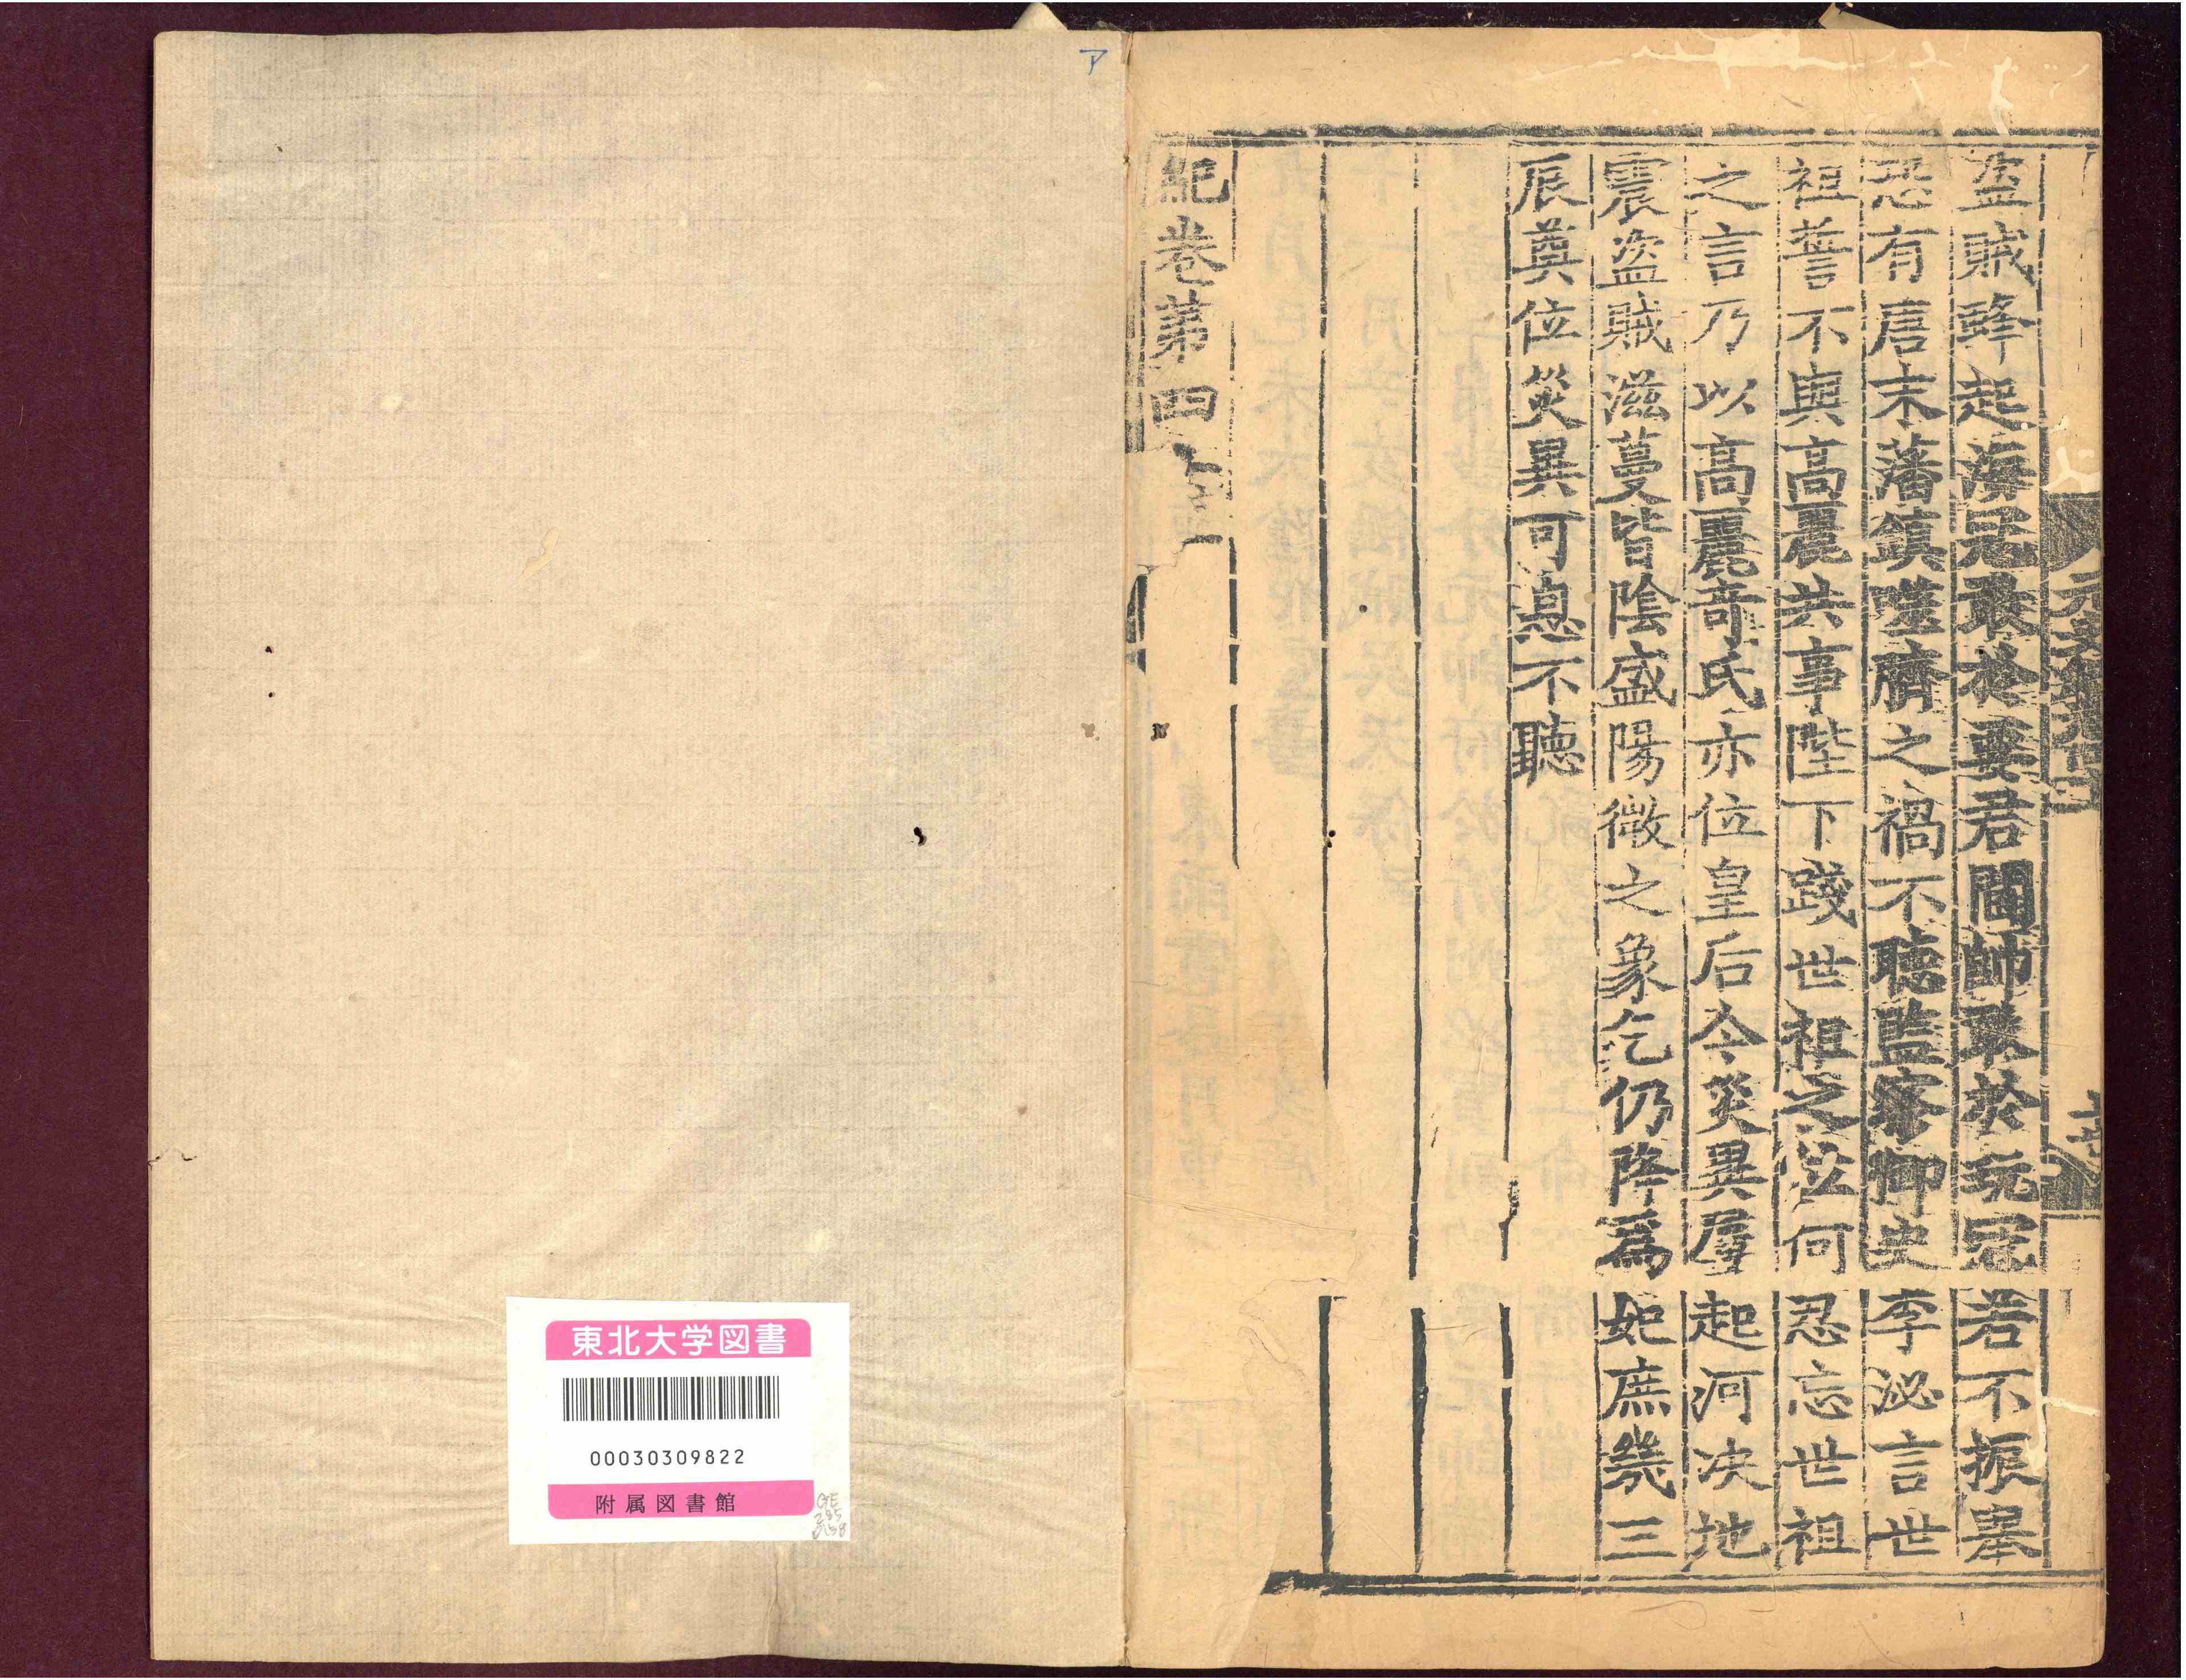 盗賊蜂起海冦敢於要君閫帥敢於玩冦若不振舉
恐有唐末藩鎮噬臍之禍不聴監察御史李泌言世
祖誓不與高麗共事陛下踐世祖之位何忍忘世祖
之言乃以高麗竒氏亦位皇后今災異屢起河决地
震盗賊滋蔓皆陰盛陽微之象乞仍降爲妃庶幾三
辰奠位災異可息不聽
紀卷第四
ア
東北大学図書
00030309822
附属図書館